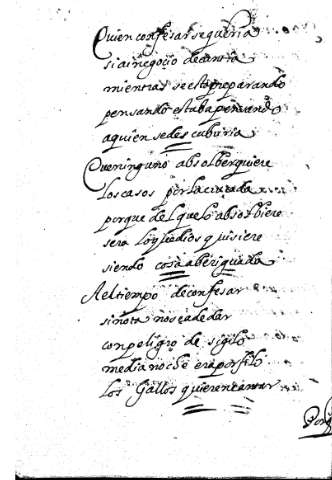 Quien confesar se queria
si ai negocio de cuantia
mientras se esta preparando
pensando estaba penando
a quien se descubriria
Que ninguno absolber quiere
los casos por la
porque del que lo absolbiere
sera lo que dios quisiere
siendo cosa aberiguada
A el tiempo de confesar
si nota nose a de dar
con peligro de sigilo
media noche era por filo
los Gallos quieren cantar
Porq